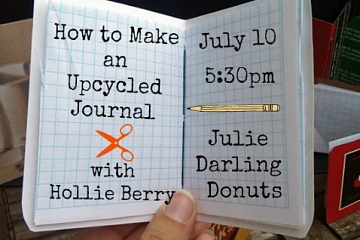 How to Make
an
Upcycled
Journal
with
Hollie Berry
July 10
5:30pm
Julie
Darling
Donuts